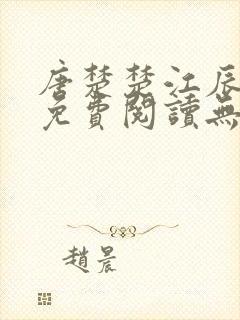 唐楚楚江辰
免費閱讀無
趙晨